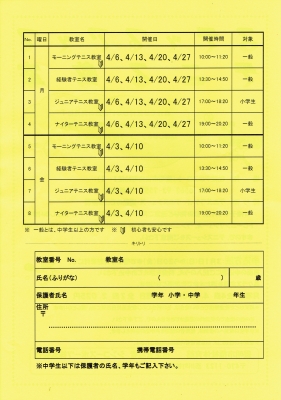 No. 曜日 教室名 開催日 開催時間 対象
1 月 モーニングテニス教室 4/6、4/13、4/20、4/27 10:00～11:20 一般
2 経験者テニス教室 4/6、4/13、4/20、4/27 13:30～14:50 一般
3 ジュニアテニス教室 4/6、4/13、4/20、4/27 17:00～18:20 小学生
4 ナイターテニス教室 4/6、4/13、4/20、4/27 19:00～20:20 一般
5 金 モーニングテニス教室 4/3、4/10 10:00～11:20 一般
6 経験者テニス教室 4/3、4/10 13:30～14:50 一般
7 ジュニアテニス教室 4/3、4/10 17:00～18:20 小学生
8 ナイターテニス教室 4/3、4/10 19:00～20:20 一般
※ 一般とは、中学生以上の方です ※ 初心者も安心です
キリトリ
教室番号 No. 教室名
氏名(ふりがな) ( ) 歳
保護者氏名 学年 小学・中学 年生
住所
〒
電話番号 携帯電話番号
※中学生以下は保護者の氏名、学年もご記入下さい。